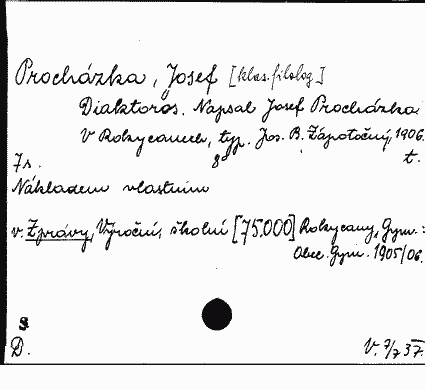 Procházka, Josef [klas. filolog.]
Diaktoros. Napsal Josef Procházka.
V Rokycanech, typ. Jos. B. Zápotočný, 1906.
7 s. 8° t.
Nákladem vlastním
v. Zprávy, Výroční, školní [75.000] Rokycany, Gym.:
Obec. Gym. 1905/06.
S
D. V. 7/7 37.